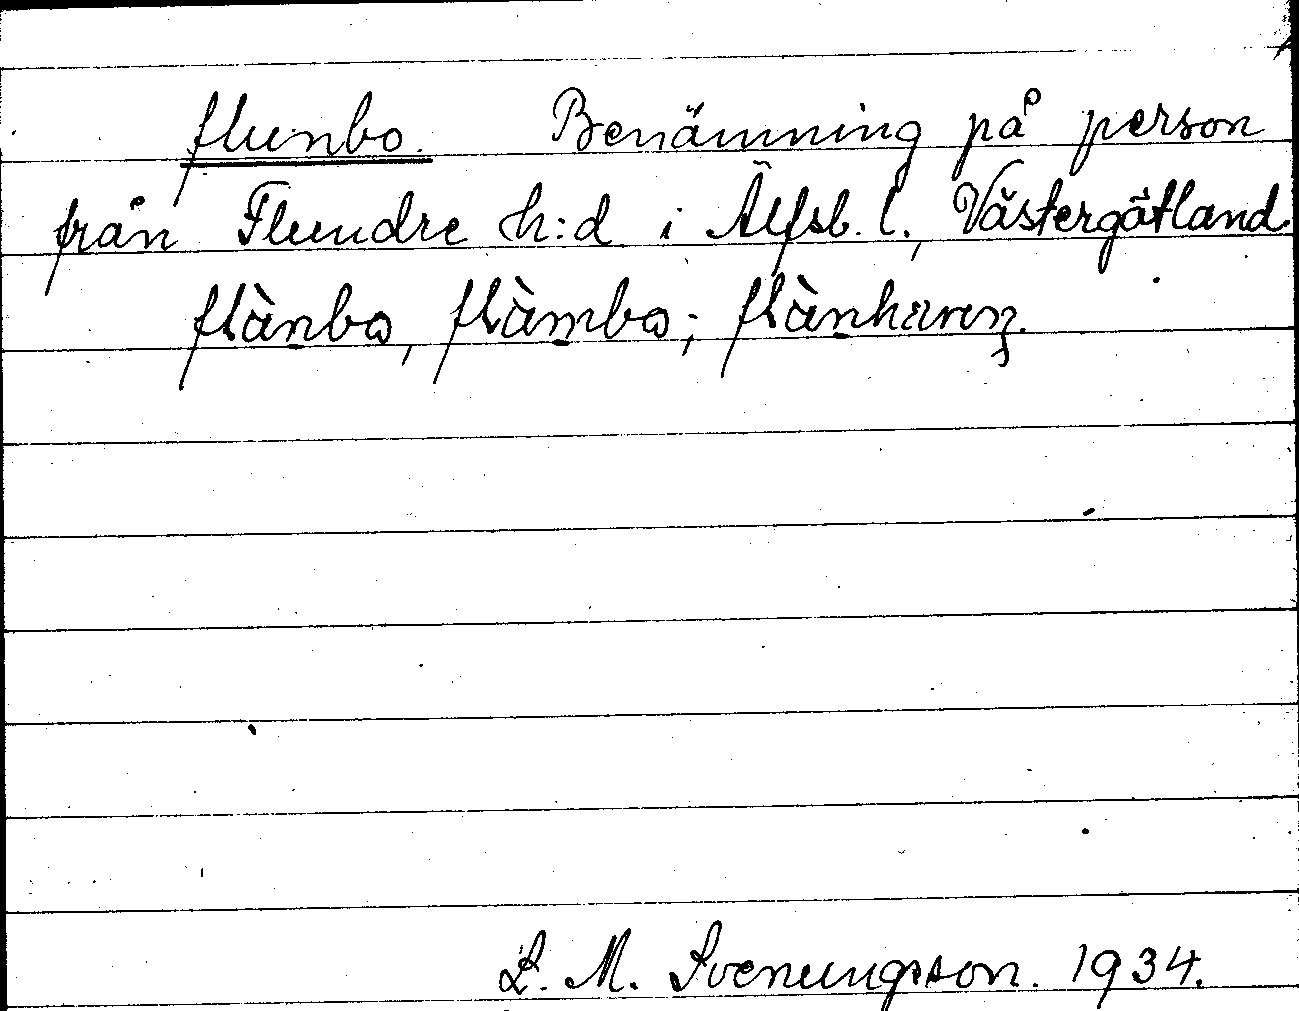 flunbo. Benämning på person
från Flundre h:d i Älfsb. l., Västergötland.
flànbo, flàmbo;
L. M. Svenungsson. 1934.